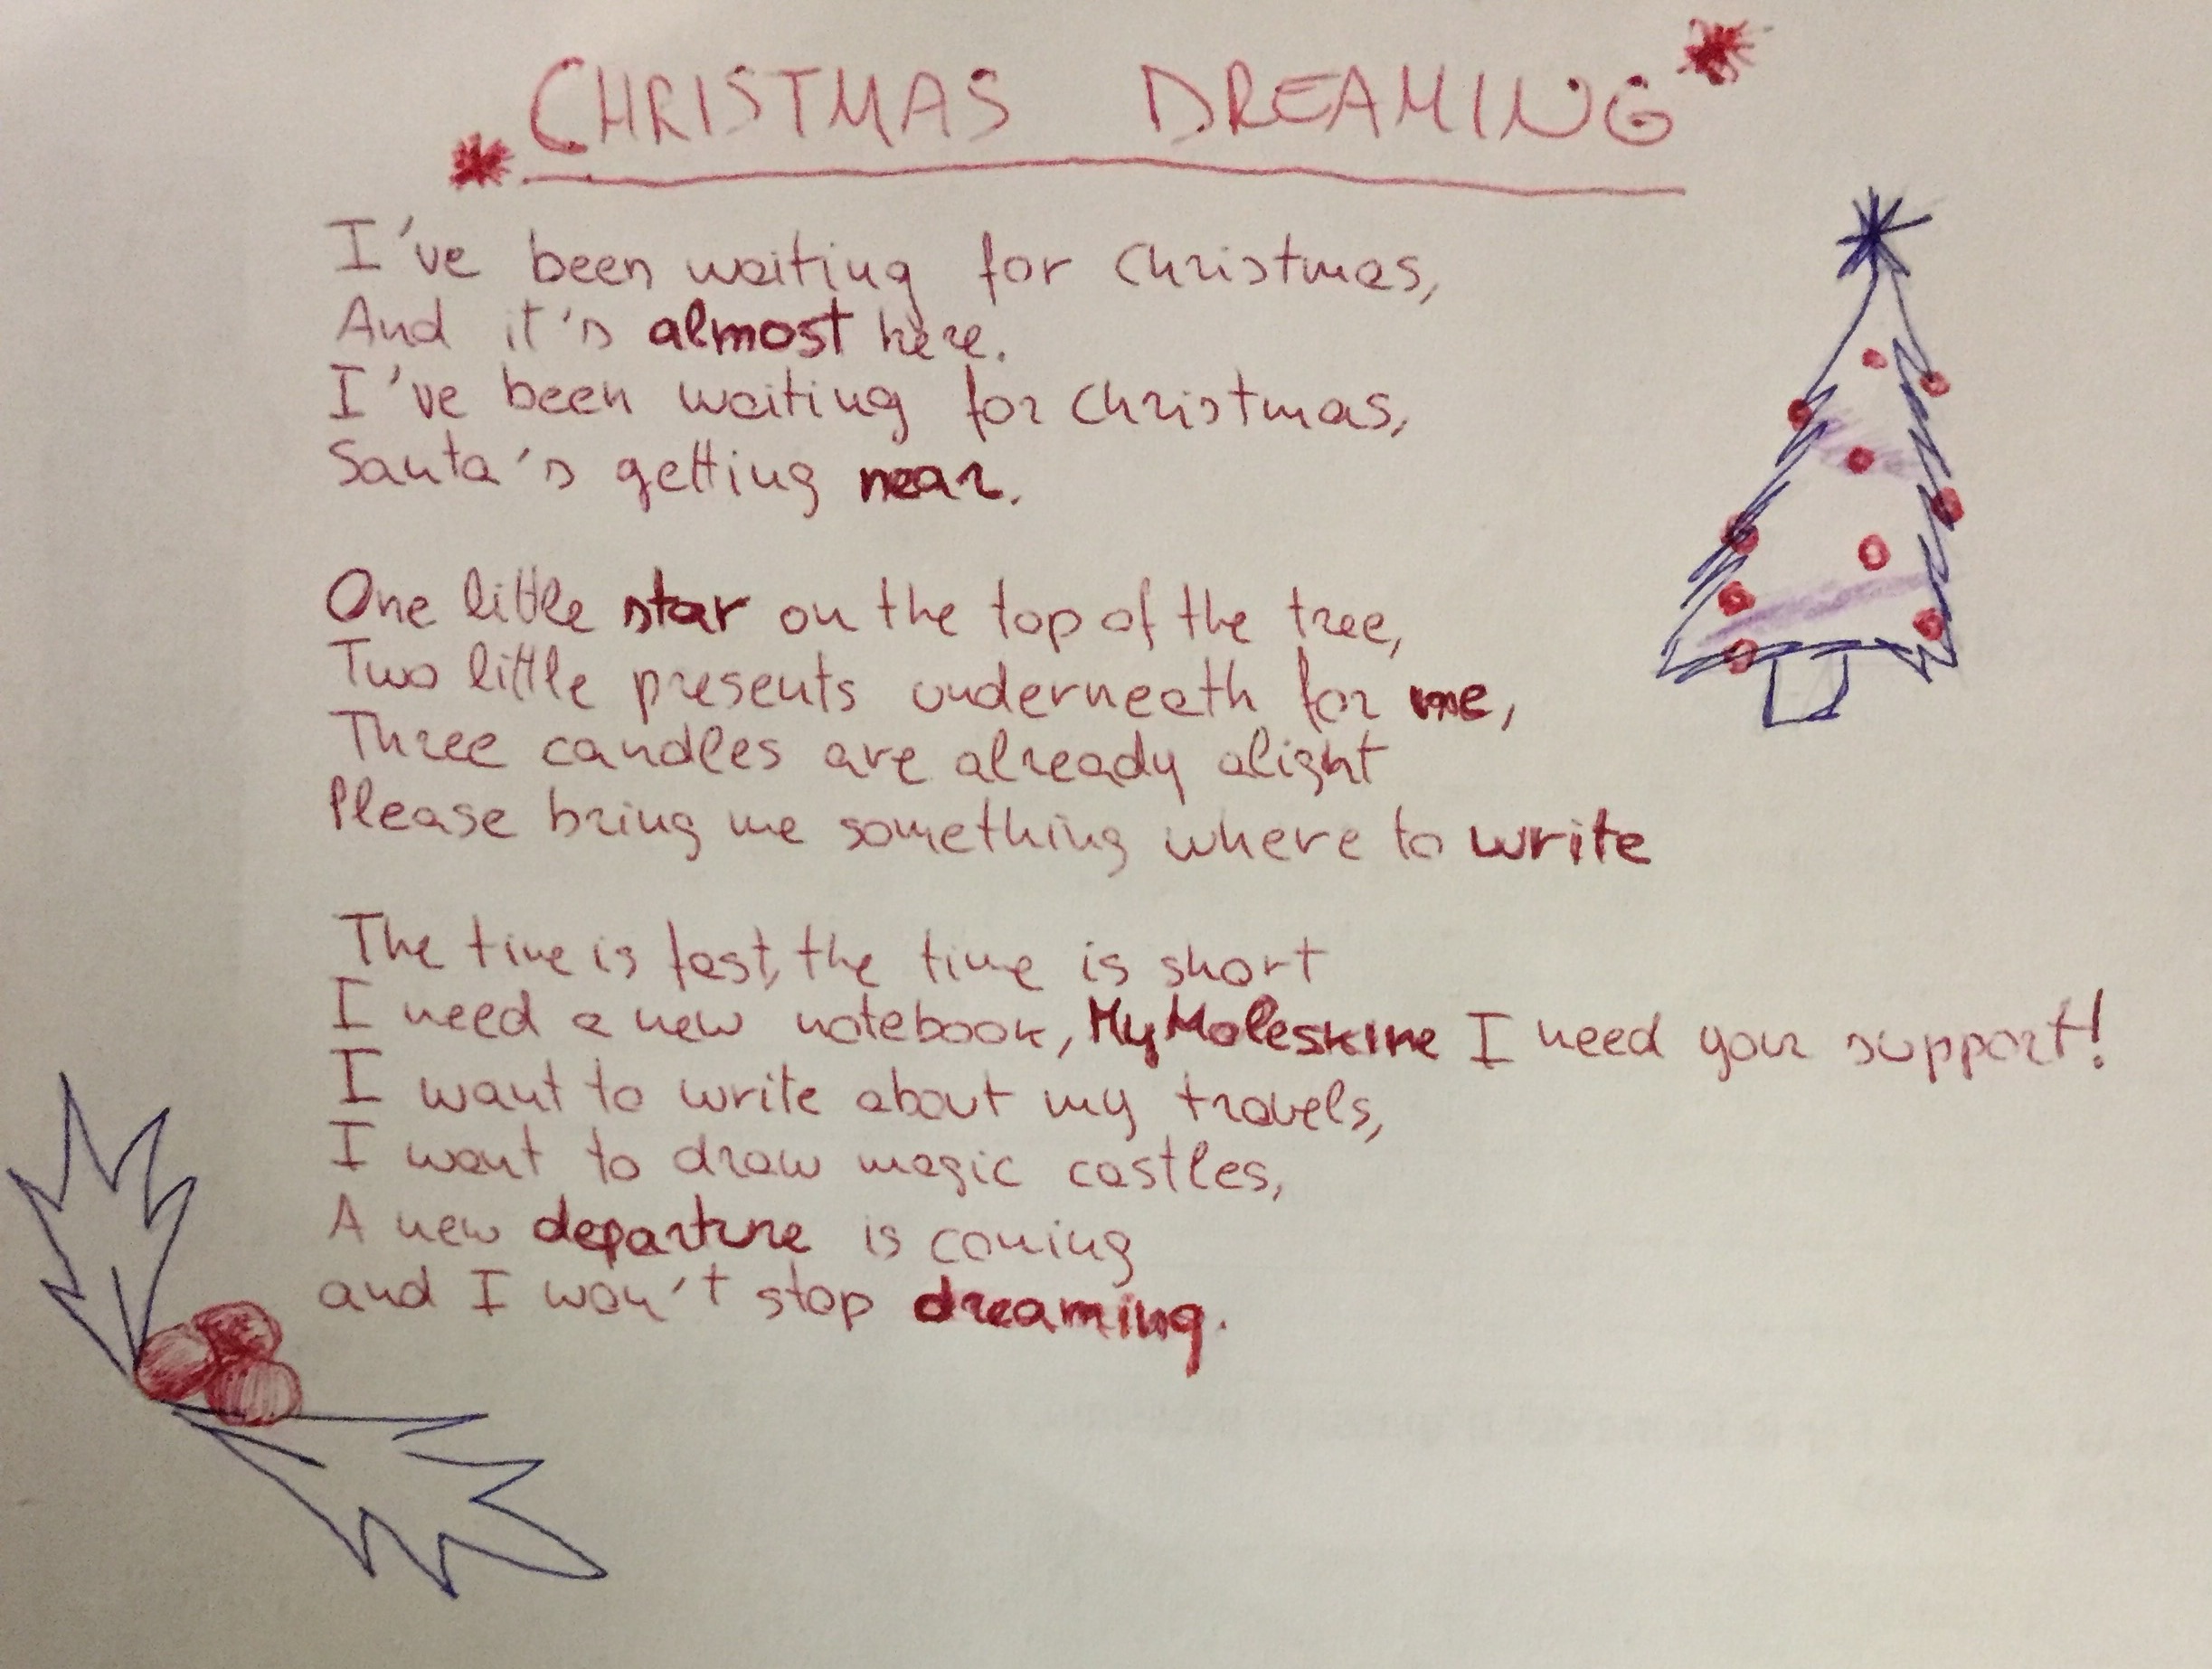 CHRISTMAS DREAMING
I've been waiting for Christmas,
And it's almost here.
I've been waiting for Christmas,
Santa's getting near.
One little star on the top of the tree,
Two little presents underneath for me,
Three candles are already alight
Please bring me something where to write
The time is fast, the time is short
I need a new notebook, My Moleskine I need your support!
I want to write about my travels,
I want to draw magic castles,
A new departure is coming
and I won't stop dreaming.